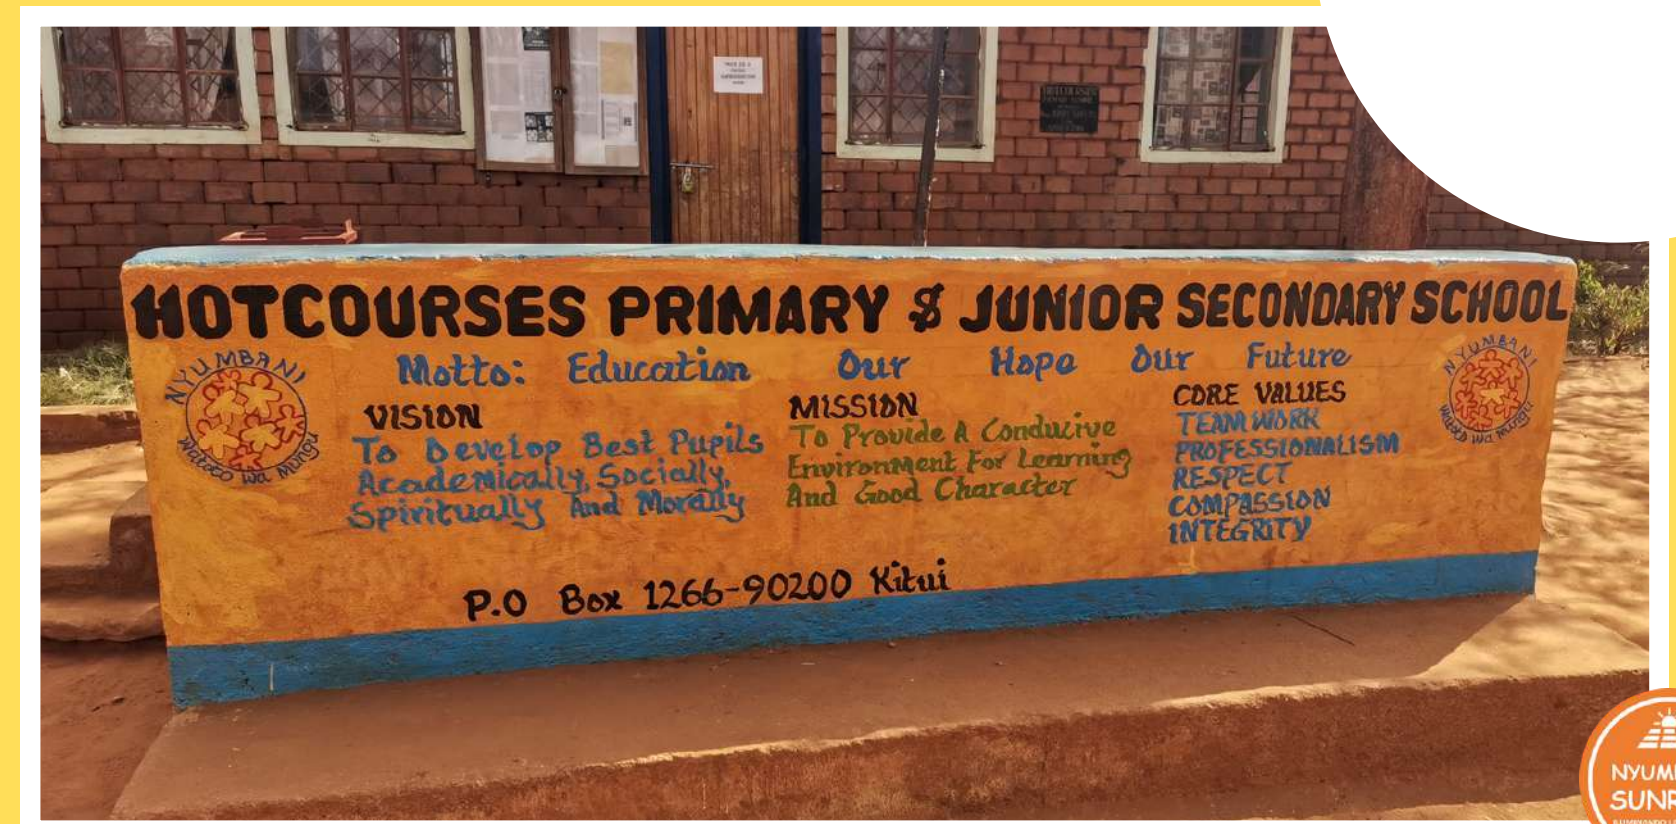 HOTCOURSES PRIMARY & JUNIOR SECONDARY SCHOOL
NYUMBANI
Watoto Wa Mungu
Motto: Education Our Hope Our Future
VISION
To Develop Best Pupils
Academically, Socially,
Spiritually And Morally
MISSION
To Provide A Conducive
Environment For Learning
And Good Character
CORE VALUES
TEAM WORK
PROFESSIONALISM
RESPECT
COMPASSION
INTEGRITY
NYUMBANI
Watoto Wa Mungu
P.O Box 1266-90200 Kitui
HOTCOURSES